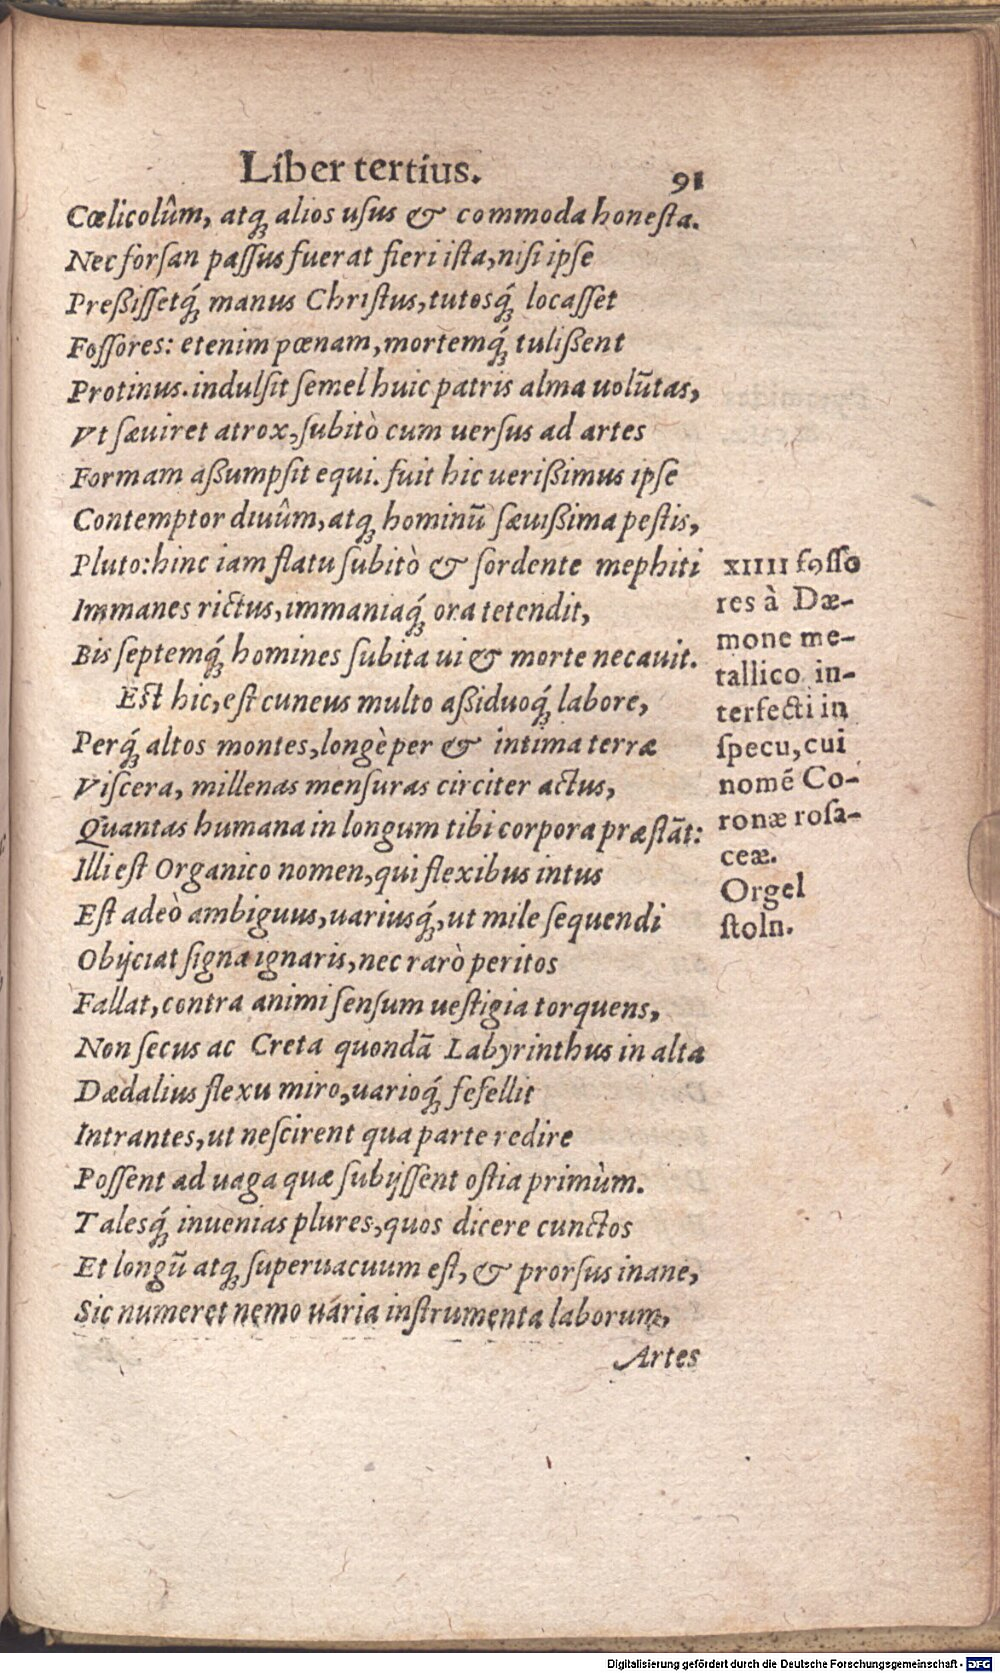 Liber tertius. 91
Cœlicolûm, atq̃ alios uſus & commoda honeſta.
Nec forſan paſſus fuerat fieri iſta, niſi ipſe
Preßiſſetq́; manus Chriſtus, tutosq́; locaſſet
Foſſores: etenim pœnam, mortemq́; tulißent
Protinus. indulſit ſemel huic patris alma uolūtas,
Vt ſæuiret atrox, ſubitò cum uerſus ad artes
Formam aßumpſit equi. fuit hic uerißimus ipſe
Contemptor diuûm, atq; hominū ſæuißima peſtis,
Pluto: hinc iam flatu ſubitò & ſordente mephiti
Immanes rictus, immaniaq́; ora tetendit,
Bis ſeptemq́; homines ſubita ui & morte necauit.
Eſt hic, eſt cuneus multo aßiduoq́; labore,
Perq́; altos montes, longè per & intima terræ
Viſcera, millenas menſuras circiter actus,
Quantas humana in longum tibi corpora præſtāt:
Illi eſt Organico nomen, qui flexibus intus
Eſt adeò ambiguus, uariusq́;, ut mile ſequendi
Obijciat ſigna ignaris, nec rarò peritos
Fallat, contra animi ſenſum ueſtigia torquens,
Non ſecus ac Creta quondā Labyrinthus in alta
Dædalius flexu miro, uarioq́; fefellit
Intrantes, ut neſcirent qua parte redire
Poſſent ad uaga quæ ſubijſſent oſtia primùm.
Talesq́; inuenias plures, quos dicere cunctos
Et longū atq; ſuperuacuum eſt, & prorſus inane,
Sic numeret nemo uaria inſtrumenta laborum,
Artes
XIIII foſſo
res à Dæ-
mone me-
tallico in-
terfecti in
ſpecu, cui
nomē Co-
ronæ roſa-
ceæ.
Orgel
ſtoln.
Digitalisierung gefördert durch die Deutsche Forschungsgemeinschaft - DFG